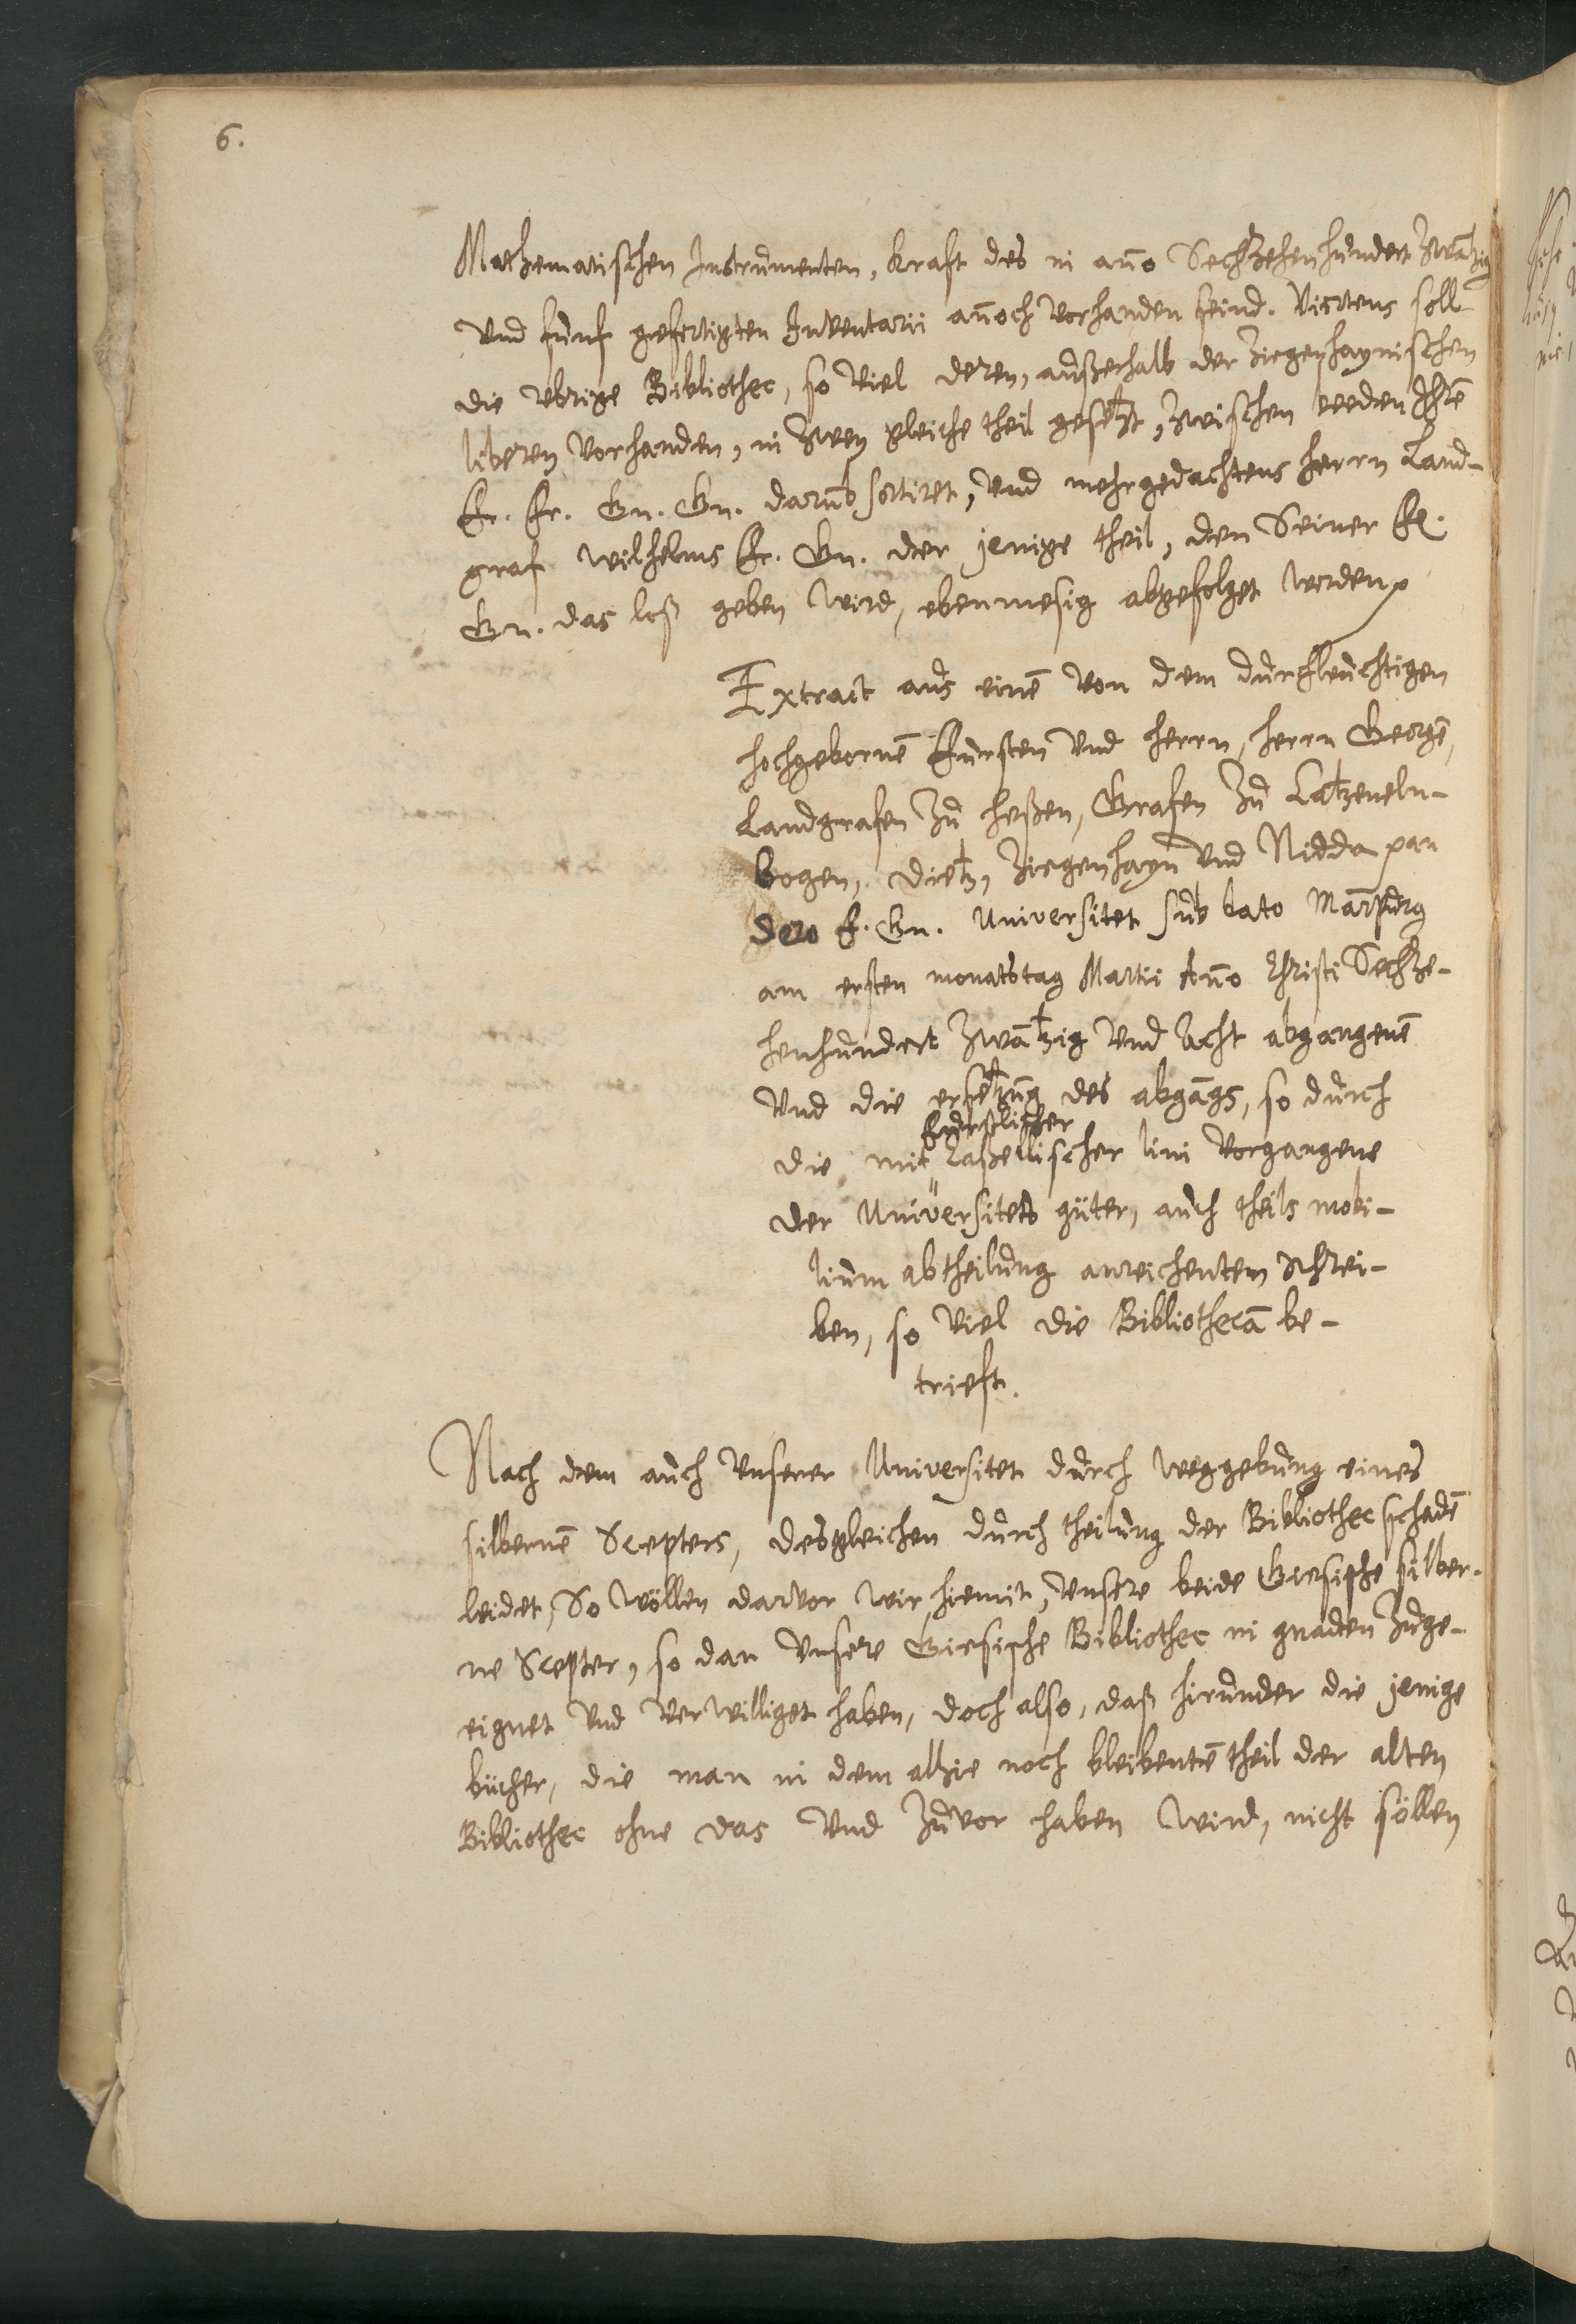 6.
Mathematischen Instrumenten, kraft des in año Sechzehenhundert Zwãtzig
und funf gefertigten Inventarii añoch vorhanden seind. Viertens soll
die ubrige Bibliothec, so viel deren, außerhalb der Ziegenhaynischen
liberey vorhanden, in zwey gleiche theil gesetzt, zwischen beeden Ihrẽ
Fr. Fr. Gn. Gn. darumb sortiret, und mehrgedachtens herrn Land-
graf Wilhelms Fr. Gn. der jenige theil, den Seiner Fr.
Gn. das loß geben wird, ebenmesig abgefolget werden
Extract aus einẽ von dem durchleuchtigen
hochgebornẽ Fursten und herrn, herrn Georgẽ,
Landgrafen zu heßen, Grafen zu Catzeneln-
bogen, dietz, Ziegenhayn und Nidda an
dero F. Gn. Universitet sub dato Marpurg
am ersten monatstag Martii Año Christi Sechze-
henhundert zwãtzig und acht abgangenẽ
und die ersetzung des abgãgs, so durch
furstlicher
die mit Caßellischer lini vorgangene
der Universitets güter, auch theils mobi-
lium abtheilung anreichentem schrei-
ben, so viel die Bibliothecã be-
trieft.
Nach dem auch unserer Universitet durch weggebung eines
silbernẽ Scepters, desgleichen durch theilung der Bibliothec schadẽ
leidet, So wöllen darvor wir hiemit, unsere beide Giesische silber-
ne Scepter, so dan unsere Giesische Bibliothec in gnaden zuge-
eignet und verwilliget haben, doch also, daß hirunder die jenige
bücher, die man in dem alhie noch bleibentẽ theil der alten
Bibliothec ohne das und zuvor haben wird, nicht söllen